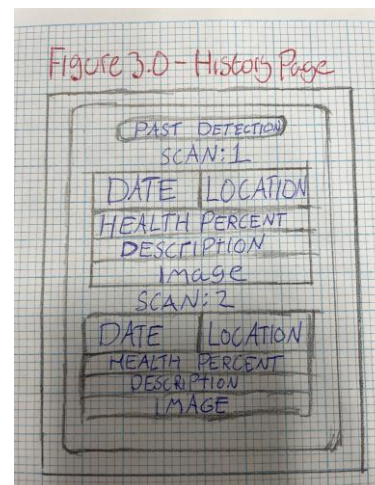 Figure 3.0 - History Page
PAST DETECTION
SCAN:1
DATE LOCATION
HEALTH PERCENT
DESCRIPTION
Image
SCAN:2
DATE LOCATION
HEALTH PERCENT
DESCRIPTION
IMAGE